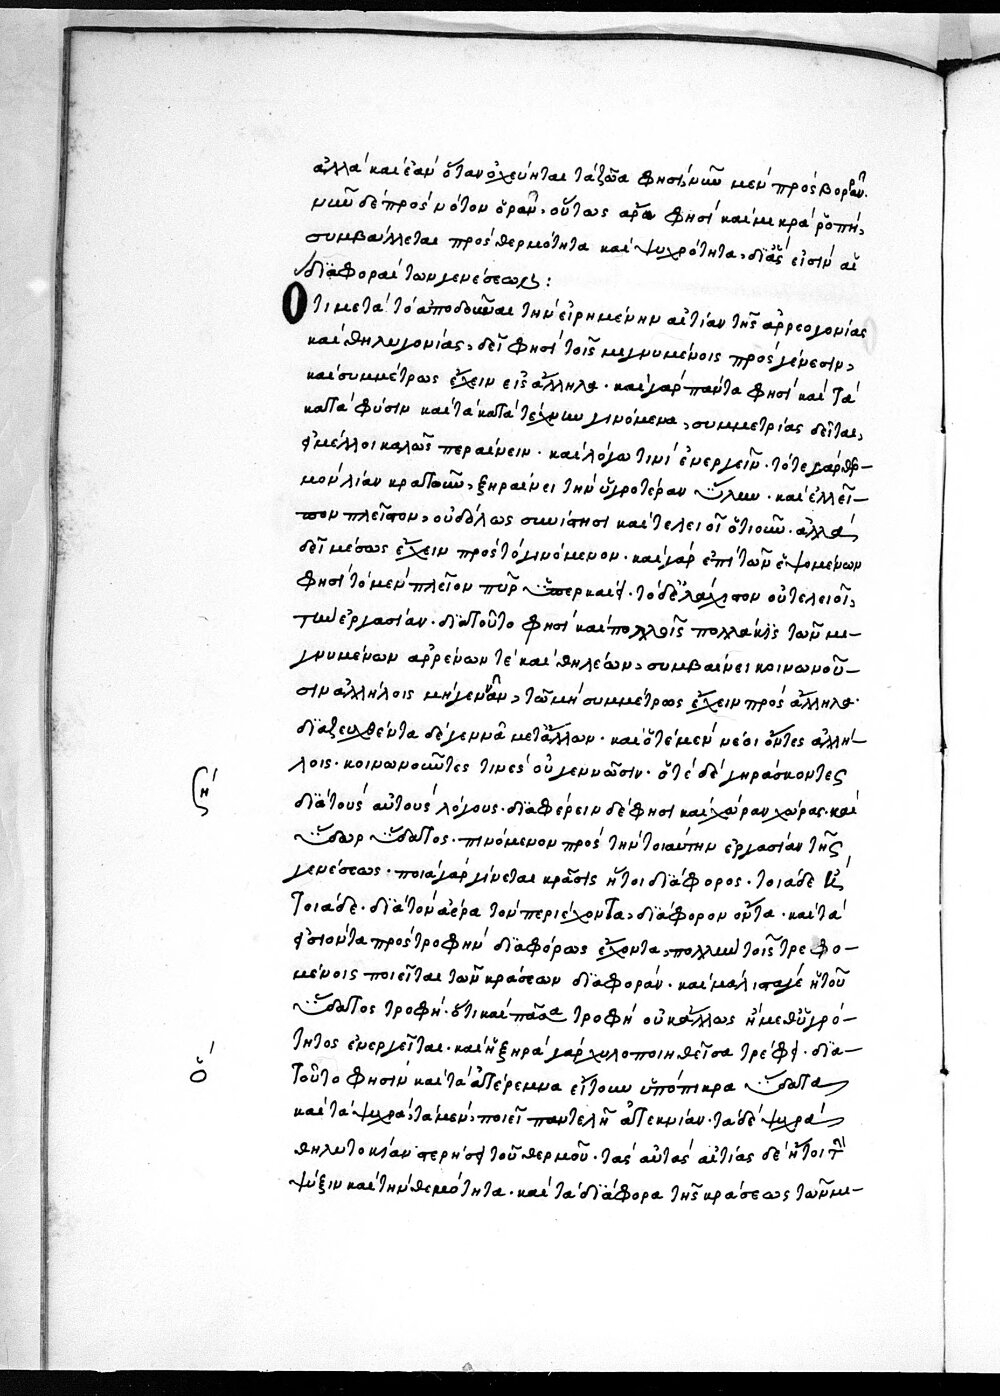 ἀλλὰ καὶ ἐὰν ὅταν ὀχεύηται τὰ ζῶα φησὶ, νῦν μὲν πρὸς βορρᾶν.
νῦν δὲ πρὸς νότον ὁρᾶν, οὕτως ἄρα φησὶ καὶ μικρὰ ῥοπὴ,
συμβάλλεται πρὸς θερμότητα καὶ ψυχρότητα, δι' ἅς εἰσὶν αἱ
διαφοραὶ τῶν γενέσεως:
Ὅτι μετὰ τὸ ἀποδοῦναι τὴν εἰρημένην αἰτίαν τῆς ἀρρεογονίας
καὶ θηλυγονίας, δεῖ φησὶ τοῖς μιγνυμένοις πρὸς γένεσιν,
καὶ συμμέτρως ἔχειν εἰς ἄλληλα. καὶ γὰρ πάντα φησὶ καὶ τὰ
κατὰ φύσιν καὶ τὰ κατὰ τέχνην γινόμενα, συμμετρίας δεῖται,
εἰ μέλλοι καλῶς περαίνειν. καὶ λόγω τινὶ ἐνεργεῖν. τό τε γὰρ θερ-
μὸν λίαν κρατοῦν, ξηραίνει τὴν ὑγροτέραν ὕλην. καὶ ἐλλεῖ-
πον πλεῖστον, οὐδόλως συνίστησι καὶ τελειοῖ ὁτιοῦν. ἀλλὰ
δεῖ μέσως ἔχειν πρὸς τὸ γινόμενον. καὶ γὰρ ἐπὶ τῶν ἑψομένων
φησὶ τὸ μὲν πλεῖον πῦρ ὑπερκαίει. τὸ δ' ἐλάχιστον οὐ τελειοῖ,
τὴν ἐργασίαν. διὰ τοῦτο φησὶ καὶ πολλοῖς πολλάκις τῶν μι-
γνυμένων ἀρρένων τὲ καὶ θηλέων, συμβαίνει κοινωνοῦ-
σιν ἀλλήλοις μὴ γεννᾶν, τῶ μὴ συμμέτρως ἔχειν πρὸς ἄλληλα.
διαζευχθέντα δὲ γεννᾶ μετ' ἄλλων. καὶ ὁτὲ μὲν νέοι ὄντες ἀλλή-
λοις. κοινωνοῦντες τινὲς οὐ γεννῶσιν. ὁτὲ δὲ γηράσκοντες
διὰ τοὺς αὐτοὺς λόγους. διαφέρειν δὲ φησι καὶ χώραν χώρας. καὶ
ὕδωρ ὕδατος. πινόμενον πρὸς τὴν τοιαύτην ἐργασίαν τῆς
γενέσεως. ποιὰ γὰρ γίνεται κρᾶσις ἤτοι διάφορος. τοιάδε καὶ
τοιάδε. διὰ τὸν ἀέρα τὸν περιέχοντα, διάφορον ὄντα. καὶ τὰ
εἰσιόντα πρὸς τροφὴν διαφόρως ἔχοντα, πολλὴν τοῖς τρεφο-
μένοις ποιεῖται τῶν κράσεων διαφοράν. καὶ μάλιστά γε ἡ τοῦ
ὕδατος τροφή. ὅτι καὶ πᾶσα τροφὴ οὐκ ἄλλως ἢ μεθ' ὑγρό-
τητος ἐνεργεῖται. καὶ ἡ ξηρὰ γὰρ χυλοποιηθεῖσα τρέφει. διὰ
τοῦτο φησὶν καὶ τὰ ἀτέρεμνα εἴτουν ὑπόπικρα ὕδατα
καὶ τὰ ψυχρὰ, τὰ μὲν, ποιεῖ παντελῆ ἀτεκνίαν. τὰ δὲ ψυχρὰ
θηλυτοκίαν στερήσει τοῦ θερμοῦ. τὰς αὐτὰς αἰτίας δὲ ἤτοι τὴν
ψύξιν καὶ τὴν θερμότητα. καὶ τὰ διάφορα τῆς κράσεως τῶν μι-